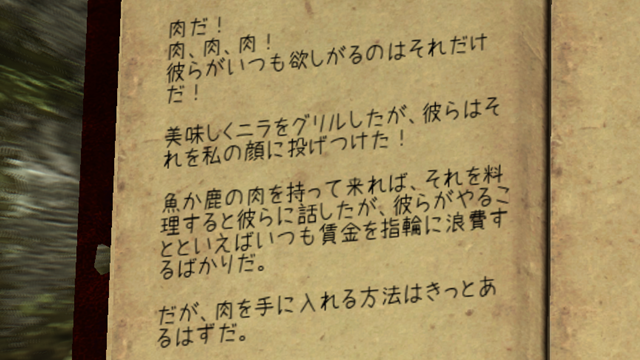 肉だ！
肉、肉、肉！
彼らがいつも欲しがるのはそれだけ
だ！
美味しくニラをグリルしたが、彼らはそ
れを私の顔に投げつけた！
魚か鹿の肉を持って来れば、それを料
理すると彼らに話したが、彼らがやるこ
とといえばいつも賃金を指輪に浪費す
るばかりだ。
だが、肉を手に入れる方法はきっとあ
るはずだ。